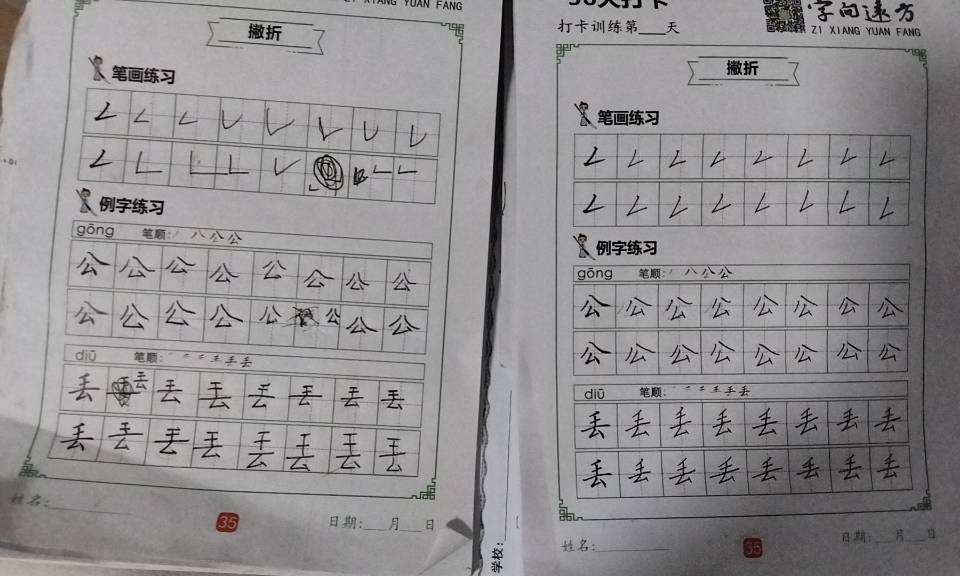 ZI XIANG YUAN FANG
撇折
笔画练习
例字练习
gōng 笔顺: 丿 八 公 公
公 公 公 公 公 公 公 公
公 公 公 公 公 公 公 公
diū 笔顺:
丢 丢 丢 丢 丢 丢 丢 丢
丢 丢 丢 丢 丢 丢 丢 丢
姓名:
35
日期: 月 日
天打卡
打卡训练第 天
字向远方
ZI XIANG YUAN FANG
撇折
笔画练习
例字练习
gōng 笔顺: 丿 八 公 公
公 公 公 公 公 公 公 公
公 公 公 公 公 公 公 公
diū 笔顺:
丢 丢 丢 丢 丢 丢 丢 丢
丢 丢 丢 丢 丢 丢 丢 丢
学校:
姓名:
35
日期: 月 日